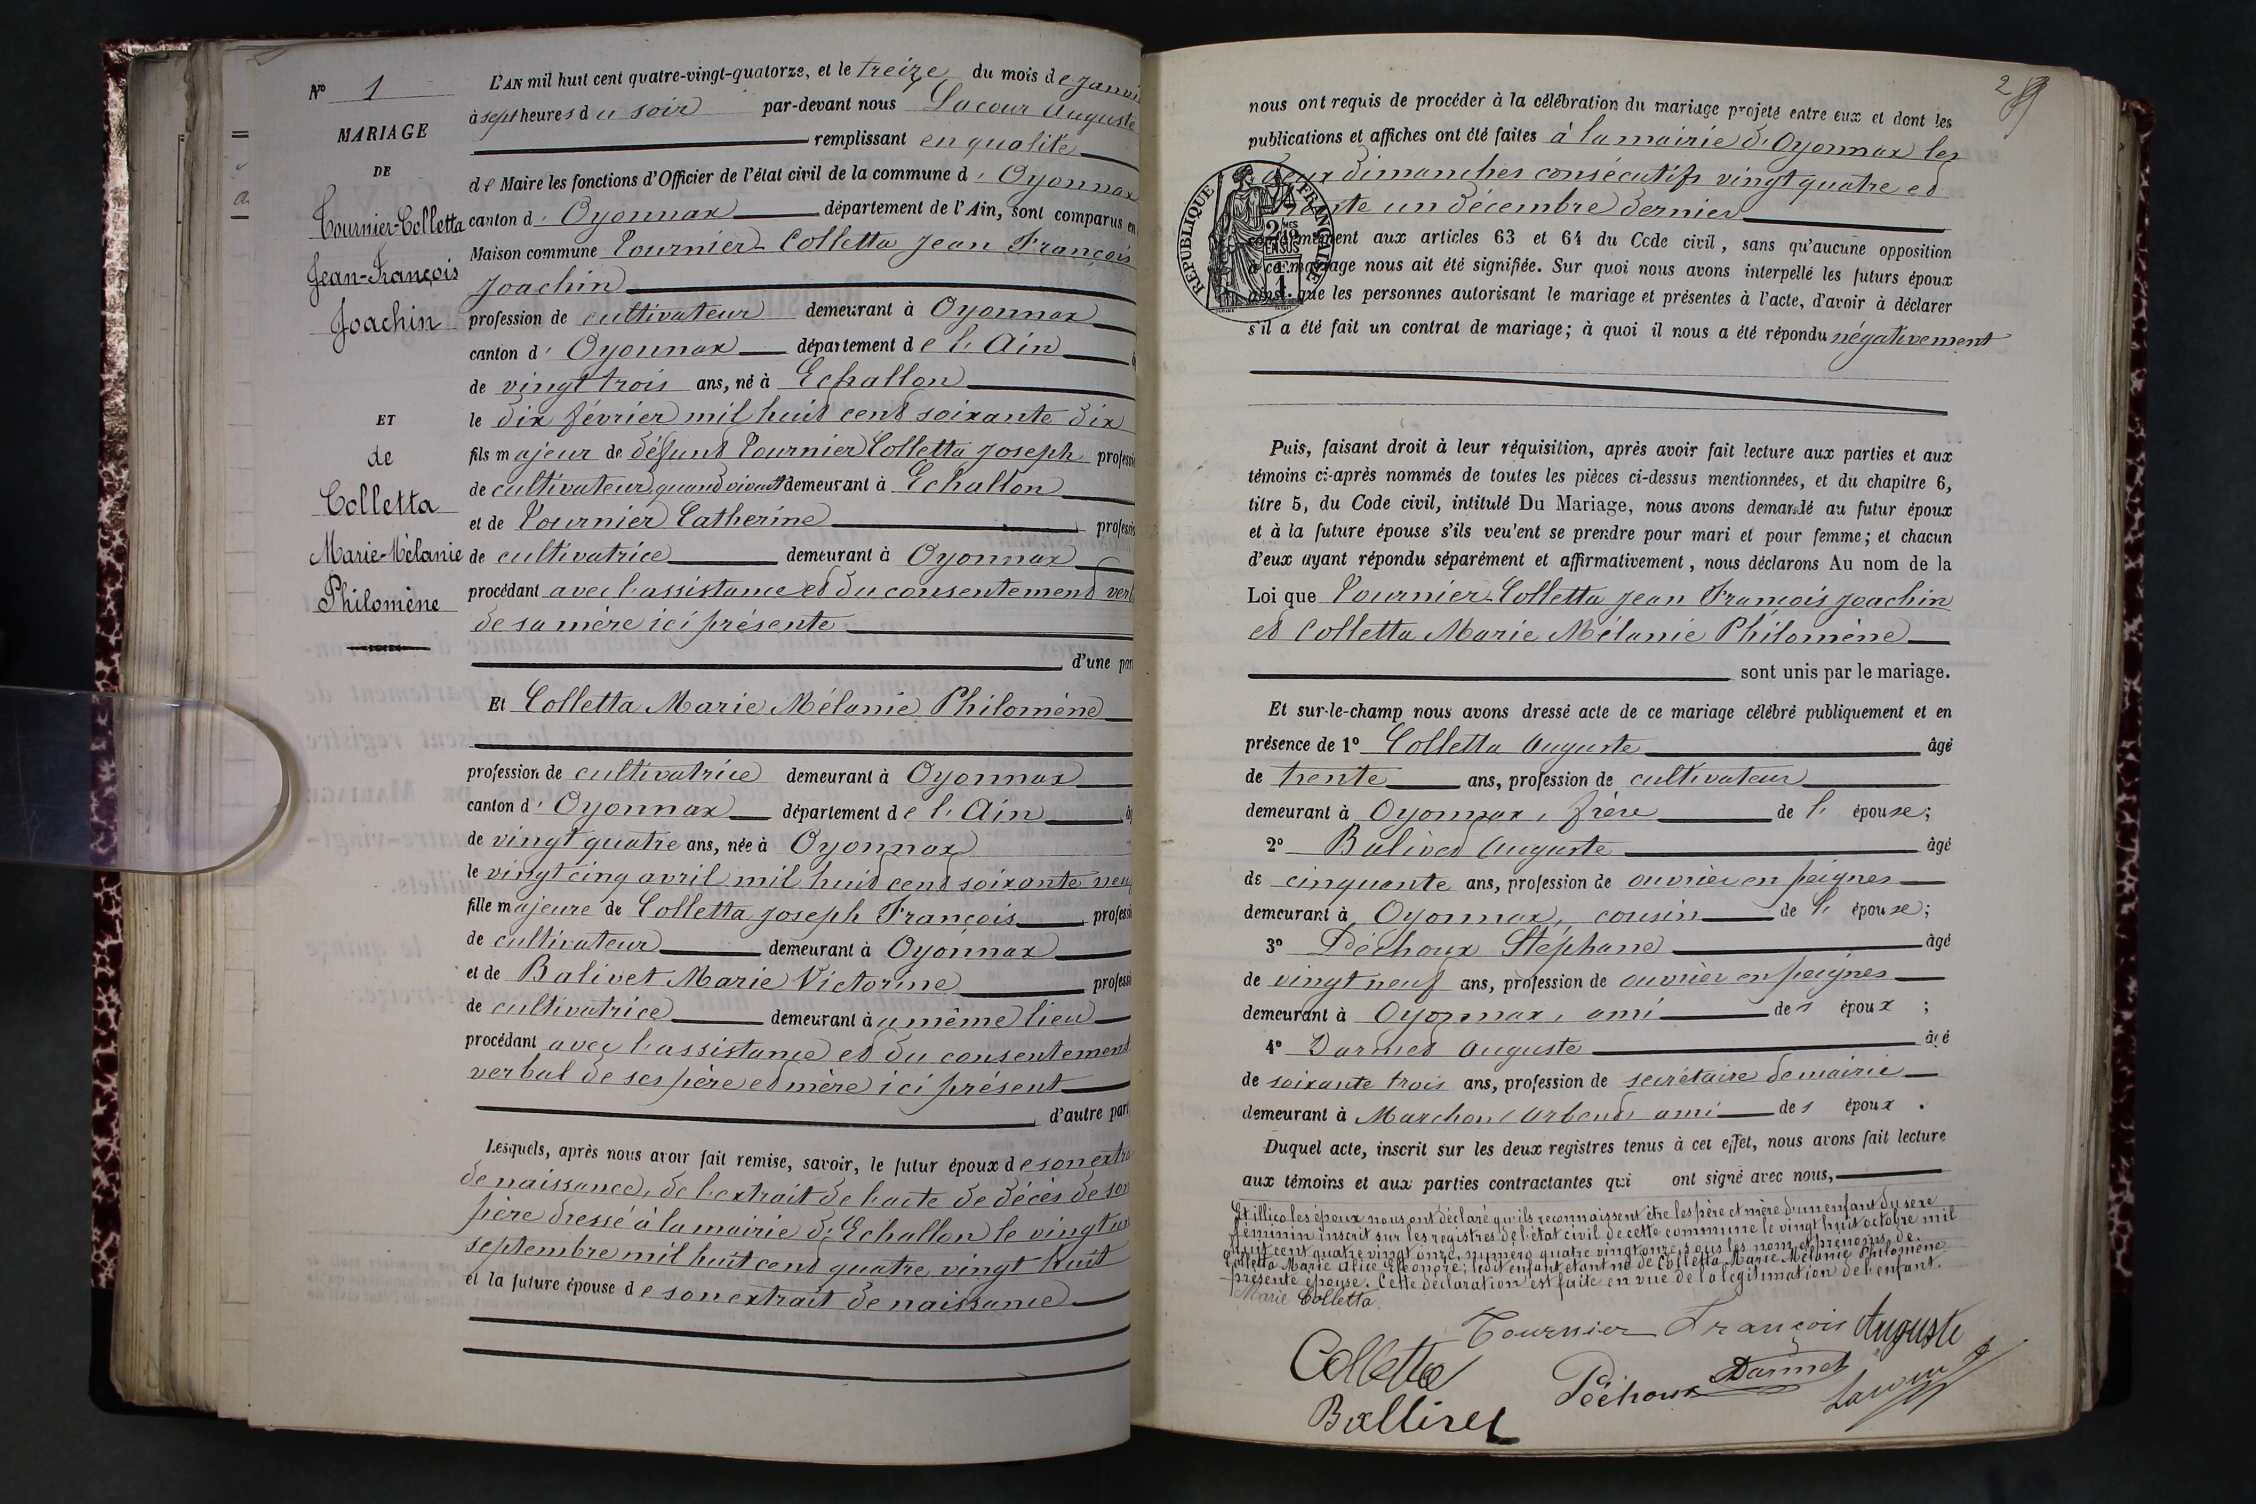 No 1
MARIAGE
DE
Tournier-Colletta
Jean-François
Joachin
ET
de
Colletta
Marie-Mélanie
Philomène
L'AN mil huit cent quatre-vingt-quatorze, et le treize du mois de janvi
à sept heures du soir par-devant nous Lacour Auguste
remplissant en qualité
de Maire les fonctions d'Officier de l'état civil de la commune d' Oyonnax
canton d' Oyonnax département de l'Ain, sont comparus en
Maison commune Tournier-Colletta Jean François
Joachin
profession de cultivateur demeurant à Oyonnax
canton d' Oyonnax département de l'Ain â
de vingt trois ans, né à Echallon
le dix février mil huit cent soixante dix
fils majeur de défunt Tournier Colletta Joseph professi
de cultivateur quand vivait demeurant à Echallon
et de Tournier Catherine professi
de cultivatrice demeurant à Oyonnax
procédant avec l'assistance et du consentement verb
de sa mère ici présente
d'une par
Et Colletta Marie Mélanie Philomène
profession de cultivatrice demeurant à Oyonnax
canton d' Oyonnax département de l'Ain âg
de vingt quatre ans, née à Oyonnax
le vingt cinq avril mil huit cent soixante neuf
fille majeure de Colletta Joseph François professi
de cultivateur demeurant à Oyonnax
et de Balivet Marie Victorine professi
de cultivatrice demeurant au même lieu
procédant avec l'assistance et du consentement
verbal de ses père et mère ici présent
d'autre part
Lesquels, après nous avoir fait remise, savoir, le futur époux de son extra
de naissance, de l'extrait de l'acte de décès de son
père dressé à la mairie d'Echallon le vingt un
septembre mil huit cent quatre vingt huit
et la future épouse de son extrait de naissance
2
nous ont requis de procéder à la célébration du mariage projeté entre eux et dont les
publications et affiches ont été faites à la mairie d'Oyonnax les
deux dimanches consécutifs vingt quatre et
trente un décembre dernier
conformément aux articles 63 et 64 du Code civil, sans qu'aucune opposition
à ce mariage nous ait été signifiée. Sur quoi nous avons interpellé les futurs époux
ainsi que les personnes autorisant le mariage et présentes à l'acte, d'avoir à déclarer
s'il a été fait un contrat de mariage; à quoi il nous a été répondu négativement
REPUBLIQUE FRANÇAISE
Puis, faisant droit à leur réquisition, après avoir fait lecture aux parties et aux
témoins ci-après nommés de toutes les pièces ci-dessus mentionnées, et du chapitre 6,
titre 5, du Code civil, intitulé Du Mariage, nous avons demandé au futur époux
et à la future épouse s'ils veulent se prendre pour mari et pour femme; et chacun
d'eux ayant répondu séparément et affirmativement, nous déclarons Au nom de la
Loi que Tournier-Colletta Jean François Joachin
et Colletta Marie Mélanie Philomène
sont unis par le mariage.
Et sur-le-champ nous avons dressé acte de ce mariage célébré publiquement et en
présence de 1º Colletta Auguste âgé
de trente ans, profession de cultivateur
demeurant à Oyonnax, frère de l' épouse;
2º Balivet Auguste âgé
de cinquante ans, profession de ouvrier en peignes
demeurant à Oyonnax, cousin de l' épouse;
3º Péchoux Stéphane âgé
de vingt neuf ans, profession de ouvrier en peignes
demeurant à Oyonnax, ami des époux ;
4º Darmet Auguste âgé
de soixante trois ans, profession de secrétaire de mairie
demeurant à Marchon Arbent ami des époux .
Duquel acte, inscrit sur les deux registres tenus à cet effet, nous avons fait lecture
aux témoins et aux parties contractantes qui ont signé avec nous,
Et illico les époux nous ont déclaré qu'ils reconnaissent être les père et mère d'un enfant du sexe
féminin inscrit sur les registres de l'état civil de cette commune le vingt huit octobre mil
huit cent quatre vingt onze, numéro quatre vingt onze, sous les nom et prénoms de
Colletta Marie Alice Eléonore; ledit enfant étant né de Colletta Marie Mélanie Philomène
présente épouse. Cette déclaration est faite en vue de la légitimation de l'enfant.
Marie Colletta
Tournier François Auguste
Colletta
Péchoux Darmet Lacour
Ballivet